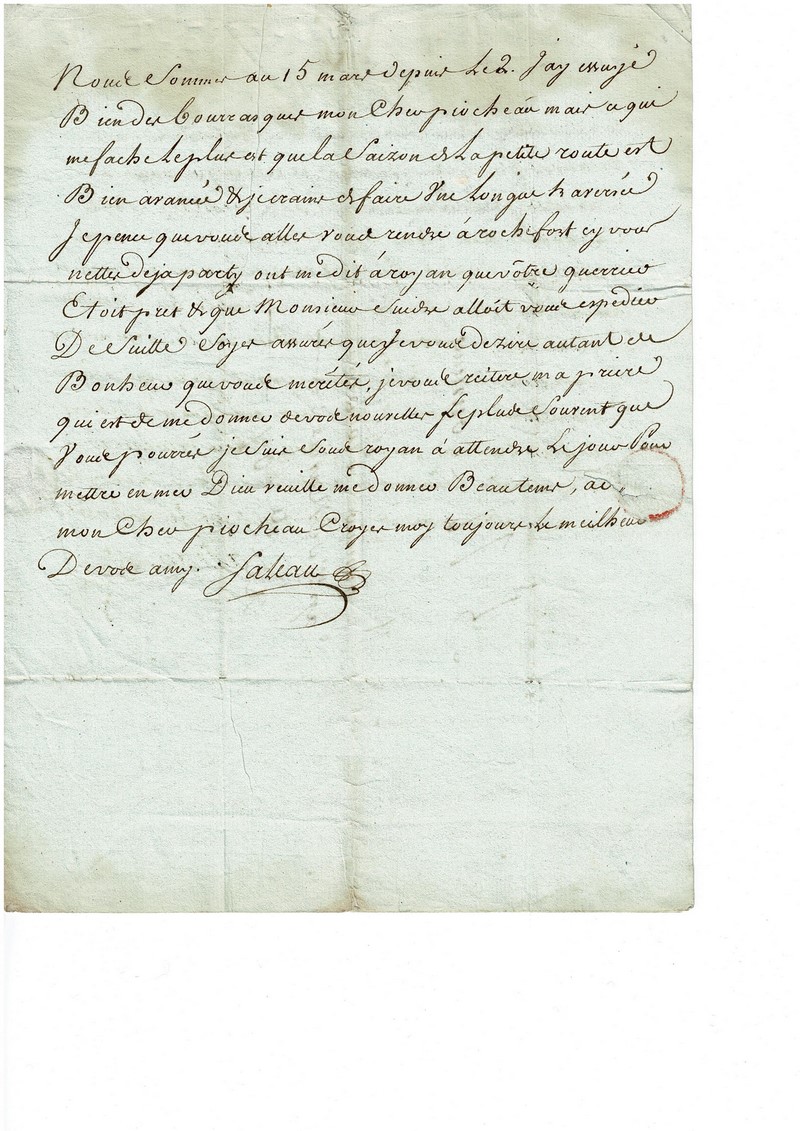 Nous Sommes au 15 mars depuis Le 2. Jay essuyé
Bien des bourrasques mon Cher piocheau mais ce qui
me fache Le plus est que la Saizon de La petite route est
Bien avancée & je crains de faire Une Longue traversée
Je pence que vous alles vous rendre à rochefort cy vous
nettes deja party ont me dit à royan que vôtre guerrier
Etoit pret & que Monsieur Suidre alloit vous expedier
De Suitte Soyes assurés que Je vous dezire autant de
Bonheur que vous mérités, je vous réitere ma priere
qui est de me donner de vos nouvelles Le plus Souvent que
Vous pourrés je suis sous royan à attendre Le jour Pour
mettre en mer Dieu veuille me donner Beau tems,
mon Cher piocheau Croyes moy toujours Le meilheur
De vos amy. Saleau